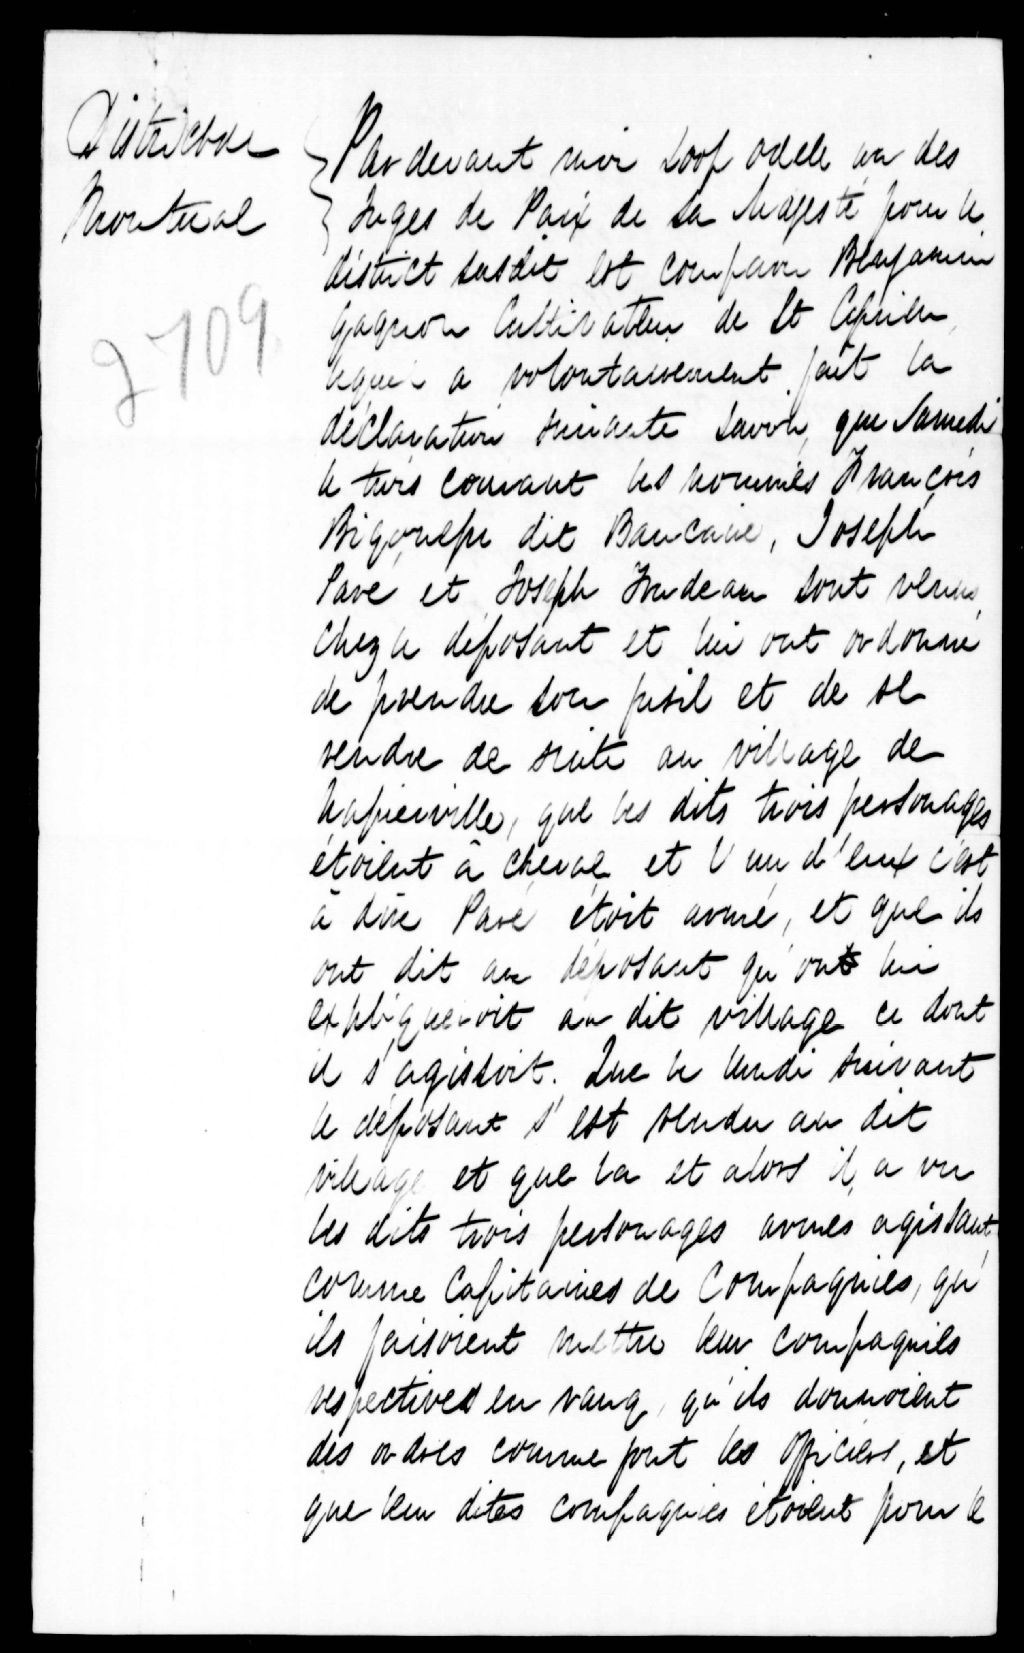 District de
Montreal
2709
Par devant moi Loop Odell un des
Juges de Paix de Sa Majesté pour le
district susdit est comparu Benjamin
Gagnon Cultivateur de St Cyprien
lequel a volontairement fait la
déclaration suivante savoir, que Samedi
le trois courant les nommés François
Bigonesse dit Baucaire, Joseph
Paré et Joseph Trudeau sont venus
chez le déposant et lui ont ordonné
de prendre son fusil et de se
rendre de suite au village de
Napierville, que les dits trois personages
étoient à cheval et l'un d'eux c'est
à dire Paré étoit armé, et que ils
ont dit au déposant qu'on lui
expliqueroit au dit village ce dont
il s'agissoit. Que le lundi suivant
le déposant s'est rendu au dit
village et que la et alors il a vu
les dits trois personages armés agissant
comme Capitaines de Compagnies, qu'
ils faisoient mettre leur compagnies
respectives en rang, qu'ils donnoient
des ordres comme font les officiers, et
que leur dites compagnies étoient pour le